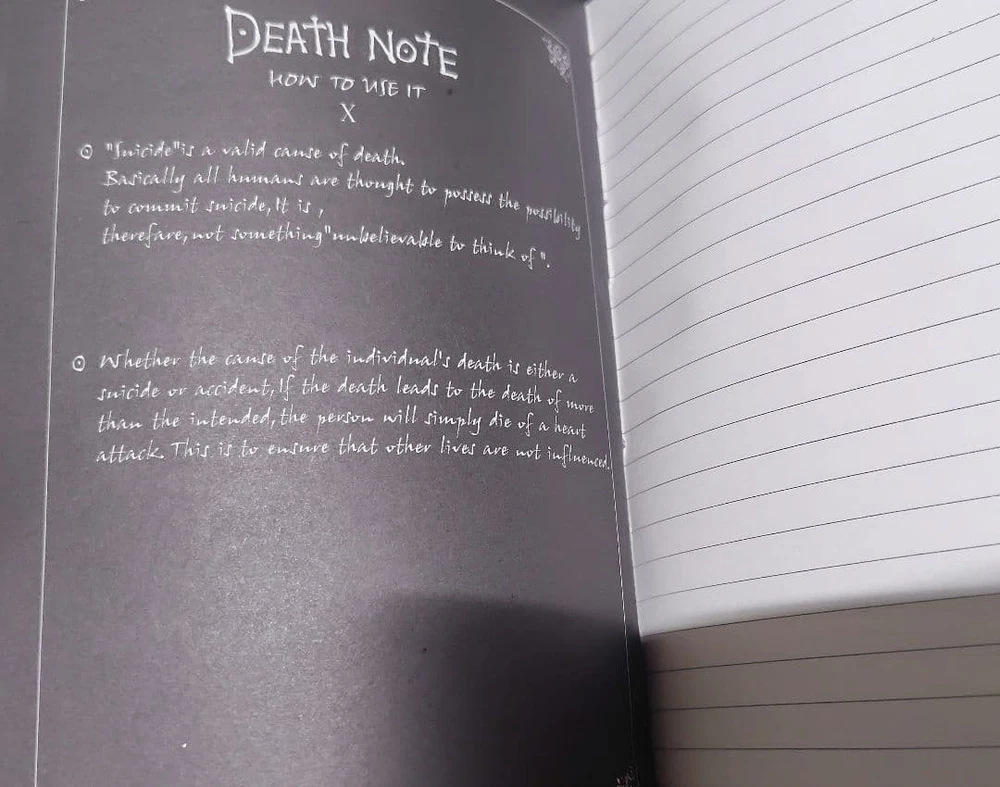 DEATH NOTE
HOW TO USE IT
X
"Suicide"is a valid cause of death.
Basically all humans are thought to possess the possibility
to commit suicide,It is ,
therefare,not something"unbelievable to think of ".
Whether the cause of the individual's death is either a
suicide or accident,If the death leads to the death of more
than the intended,the person will simply die of a heart
attack. This is to ensure that other lives are not influenced.